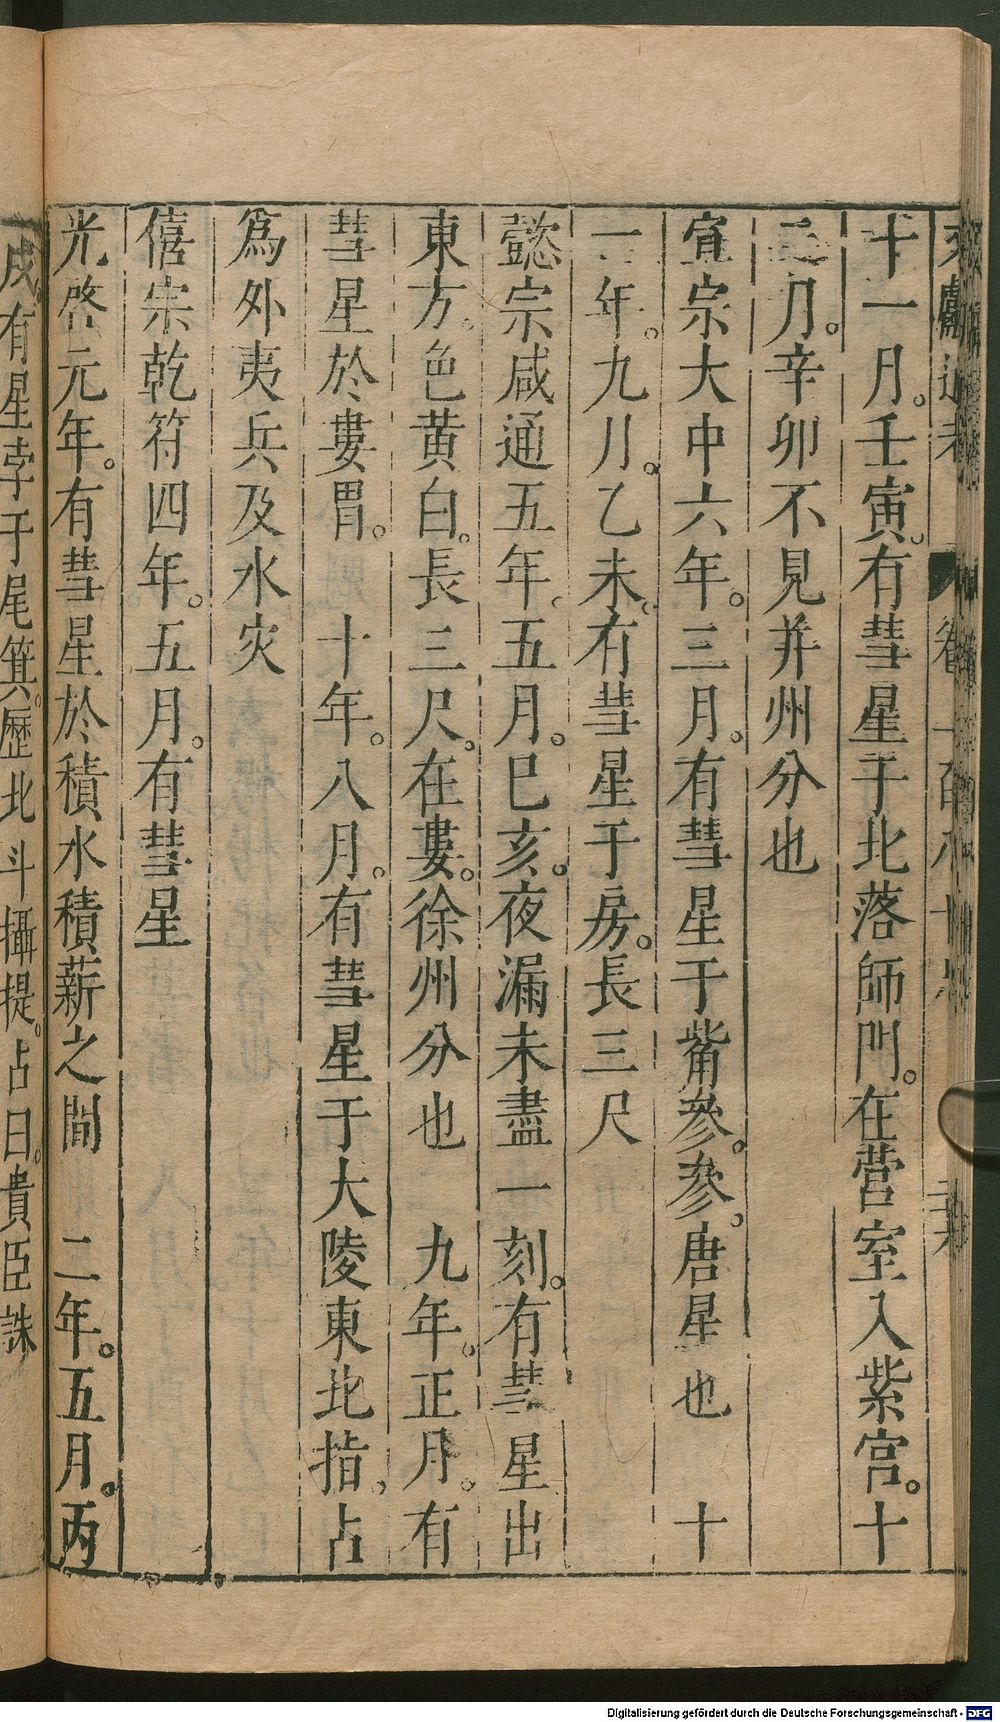 十一月。壬寅。有彗星于北落師門。在營室入紫宮。十
二月。辛卯不見并州分也
宣宗大中六年。三月。有彗星于觜參。參。唐星也 十
一年。九月。乙未。有彗星于房。長三尺
懿宗咸通五年。五月。巳亥。夜漏未盡一刻。有彗星出
東方。色黃白。長三尺。在婁。徐州分也 九年。正月。有
彗星於婁胃。 十年。八月。有彗星于大陵東北指。占
爲外夷兵及水灾
僖宗乾符四年。五月。有彗星
光啓元年。有彗星於積水積薪之間 二年。五月。丙
戌。有星孛于尾箕。歷北斗攝提。占曰。貴臣誅
Digitalisierung gefördert durch die Deutsche Forschungsgemeinschaft - DFG